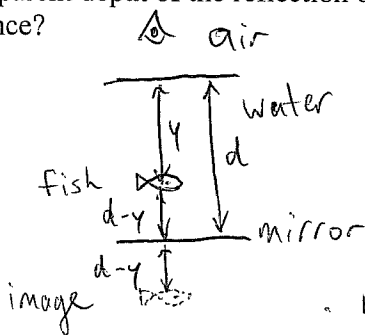 parent depth of the reflection
nce?
air
water
y
d
fish
d-y
mirror
d-y
image